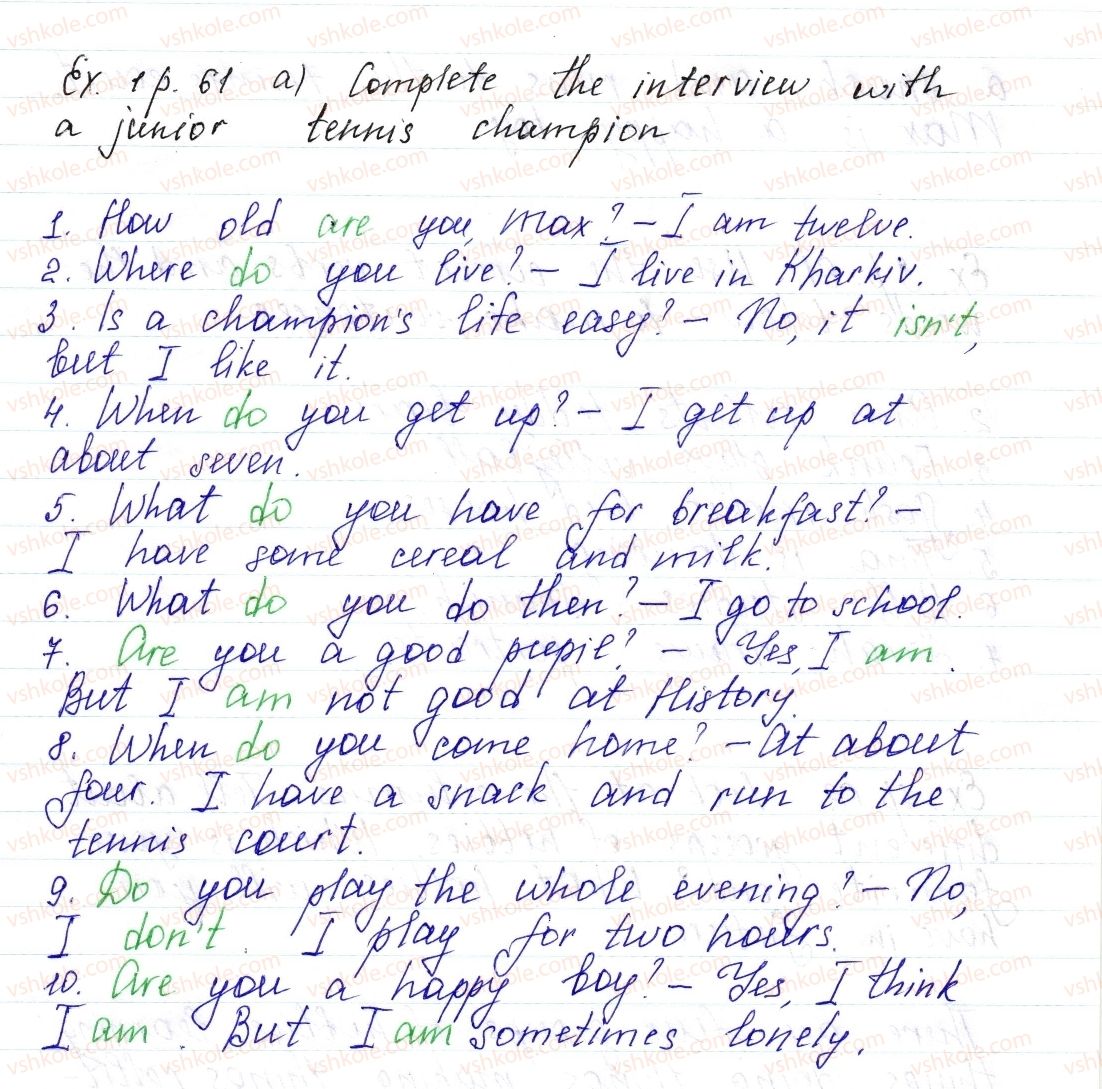 Ex. 1 p. 61 a) Complete the interview with
a junior tennis champion
1. How old are you, Max? – I am twelve.
2. Where do you live? – I live in Kharkiv.
3. Is a champion's life easy? – No, it isn't,
but I like it.
4. When do you get up? – I get up at
about seven.
5. What do you have for breakfast? –
I have some cereal and milk.
6. What do you do then? – I go to school.
7. Are you a good pupil? – Yes, I am.
But I am not good at History.
8. When do you come home? – At about
four. I have a snack and run to the
tennis court.
9. Do you play the whole evening? – No,
I don't. I play for two hours.
10. Are you a happy boy? – Yes, I think
I am. But I am sometimes lonely.
vshkole.com